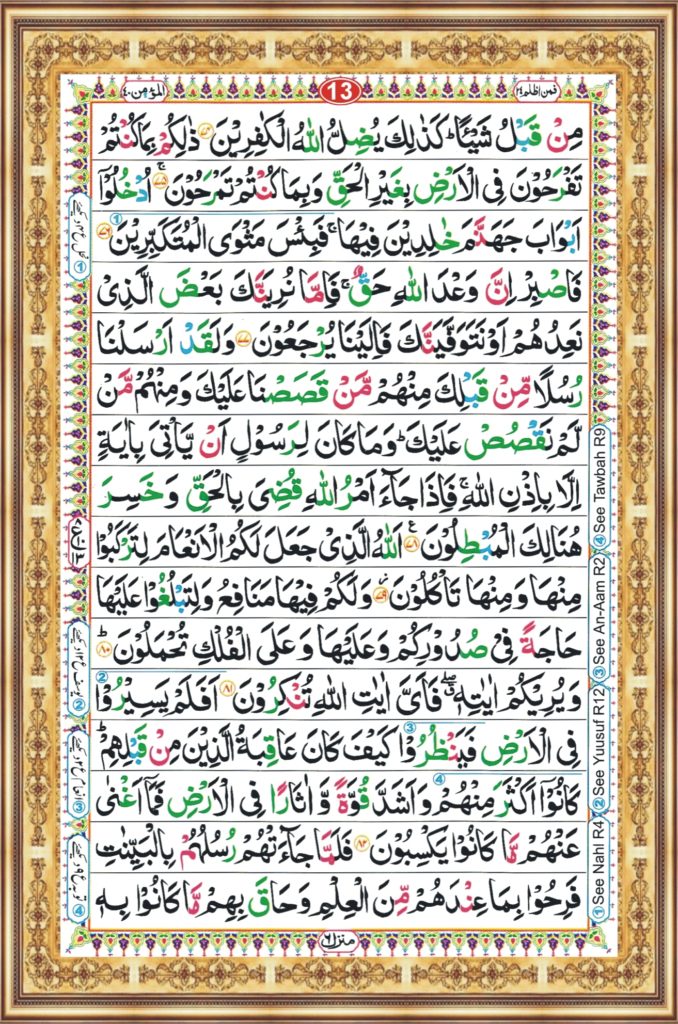 فمن اظلم ٢٤
13
المؤمن ٤٠
مِنْ قَبْلُ شَيْـًٔا ؕ كَذٰلِكَ يُضِلُّ اللّٰهُ الْكٰفِرِيْنَ ﴿۷۴﴾ ذٰلِكُمْ بِمَا كُنْتُمْ
تَفْرَحُوْنَ فِی الْاَرْضِ بِغَيْرِ الْحَقِّ وَبِمَا كُنْتُمْ تَمْرَحُوْنَ ﴿۷۵﴾ۚ اُدْخُلُوْۤا
اَبْوَابَ جَهَنَّمَ خٰلِدِيْنَ فِيْهَا ۚ فَبِئْسَ مَثْوَی الْمُتَكَبِّرِيْنَ ﴿۷۶﴾
فَاصْبِرْ اِنَّ وَعْدَ اللّٰهِ حَقٌّ ۚ فَاِمَّا نُرِيَنَّكَ بَعْضَ الَّذِیْ
نَعِدُهُمْ اَوْ نَتَوَفَّيَنَّكَ فَاِلَيْنَا يُرْجَعُوْنَ ﴿۷۷﴾ وَلَقَدْ اَرْسَلْنَا
رُسُلًا مِّنْ قَبْلِكَ مِنْهُمْ مَّنْ قَصَصْنَا عَلَيْكَ وَمِنْهُمْ مَّنْ
لَّمْ نَقْصُصْ عَلَيْكَ ؕ وَمَا كَانَ لِرَسُوْلٍ اَنْ يَّاْتِیَ بِاٰيَةٍ
اِلَّا بِاِذْنِ اللّٰهِ ۚ فَاِذَا جَآءَ اَمْرُ اللّٰهِ قُضِیَ بِالْحَقِّ وَخَسِرَ
هُنَالِكَ الْمُبْطِلُوْنَ ﴿۷۸﴾ اَللّٰهُ الَّذِیْ جَعَلَ لَكُمُ الْاَنْعَامَ لِتَرْكَبُوْا
مِنْهَا وَمِنْهَا تَاْكُلُوْنَ ﴿۷۹﴾ وَلَكُمْ فِيْهَا مَنَافِعُ وَلِتَبْلُغُوْا عَلَيْهَا
حَاجَةً فِیْ صُدُوْرِكُمْ وَعَلَيْهَا وَعَلَی الْفُلْكِ تُحْمَلُوْنَ ﴿۸۰﴾ؕ
وَيُرِيْكُمْ اٰيٰتِهٖ ۖ فَاَیَّ اٰيٰتِ اللّٰهِ تُنْكِرُوْنَ ﴿۸۱﴾ اَفَلَمْ يَسِيْرُوْا
فِی الْاَرْضِ فَيَنْظُرُوْا كَيْفَ كَانَ عَاقِبَةُ الَّذِيْنَ مِنْ قَبْلِهِمْ ؕ
كَانُوْۤا اَكْثَرَ مِنْهُمْ وَاَشَدَّ قُوَّةً وَّاٰثَارًا فِی الْاَرْضِ فَمَاۤ اَغْنٰی
عَنْهُمْ مَّا كَانُوْا يَكْسِبُوْنَ ﴿۸۲﴾ فَلَمَّا جَآءَتْهُمْ رُسُلُهُمْ بِالْبَيِّنٰتِ
فَرِحُوْا بِمَا عِنْدَهُمْ مِّنَ الْعِلْمِ وَحَاقَ بِهِمْ مَّا كَانُوْا بِهٖ
منزل ٦
① See Nahl R4 ② See Yuusuf R12 ③ See An-Aam R2 ④ See Tawbah R9
① نحل ع ٤ دیکھئے
② یوسف ع ١٢ دیکھئے
③ انعام ع ٢ دیکھئے
④ توبہ ع ٩ دیکھئے